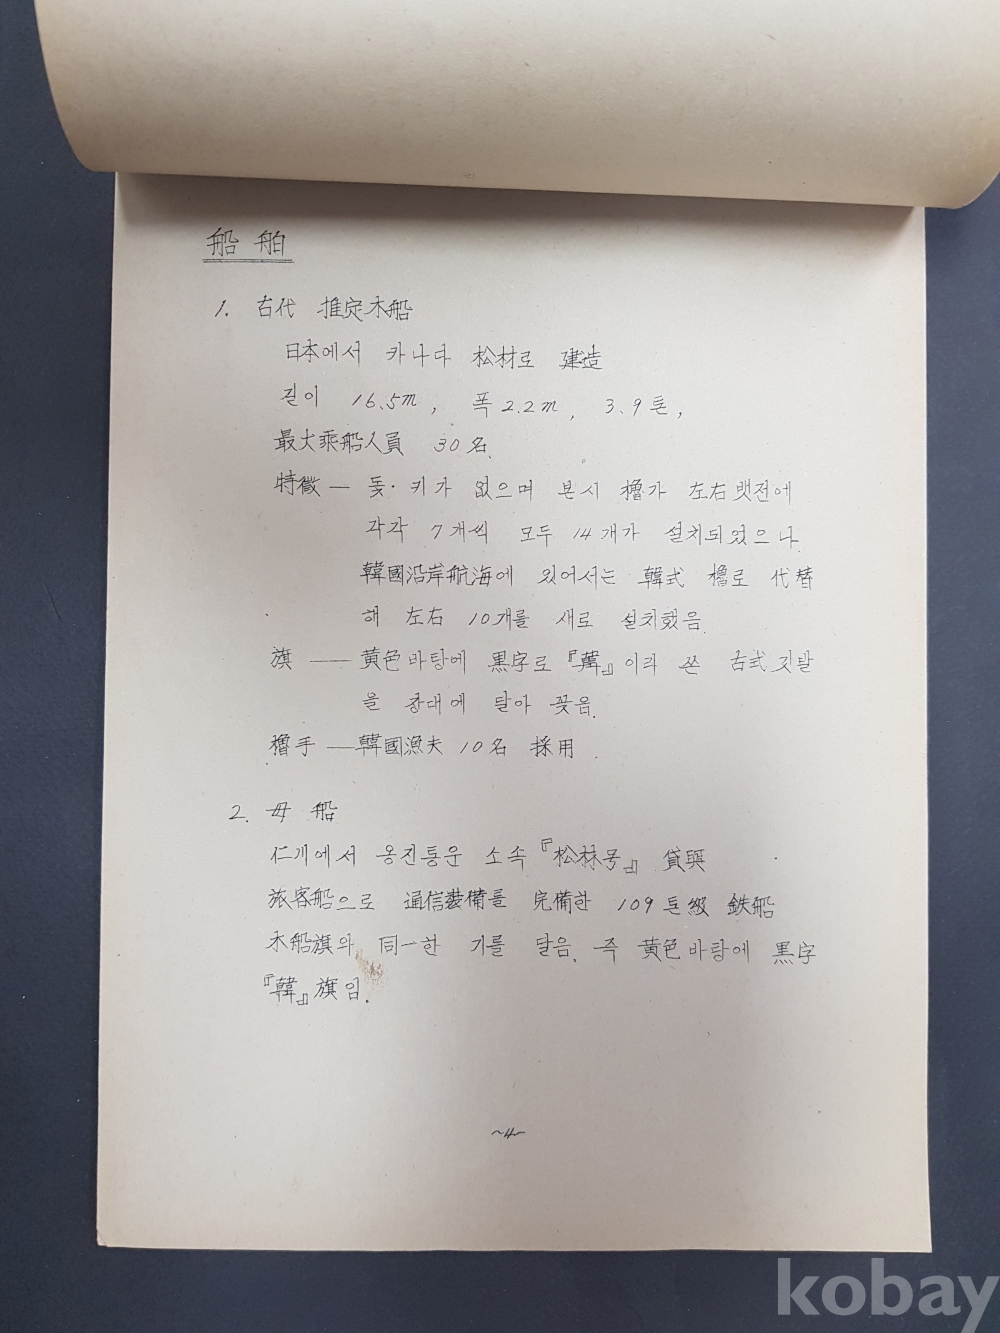 船舶
1. 古代 推定木船
日本에서 카나다 松材로 建造
길이 16.5m, 폭 2.2m, 3.9톤,
最大乘船人員 30名.
特徵 — 돛·키가 없으며 본시 櫓가 左右뱃전에
각각 7개씩 모두 14개가 설치되었으나
韓國沿岸航海에 있어서는 韓式 櫓로 代替
해 左右 10개를 새로 설치했음.
旗 — 黃色바탕에 黑字로 『韓』이라 쓴 古式깃발
을 창대에 달아 꽂음.
櫓手 — 韓國漁夫 10名 採用
2. 母船
仁川에서 옹진통운 소속 『松林号』 貸與
旅客船으로 通信裝備를 完備한 109톤級 鉄船
木船旗와 同一한 기를 달음. 즉 黃色바탕에 黑字
『韓』旗임.
~4~
kobay